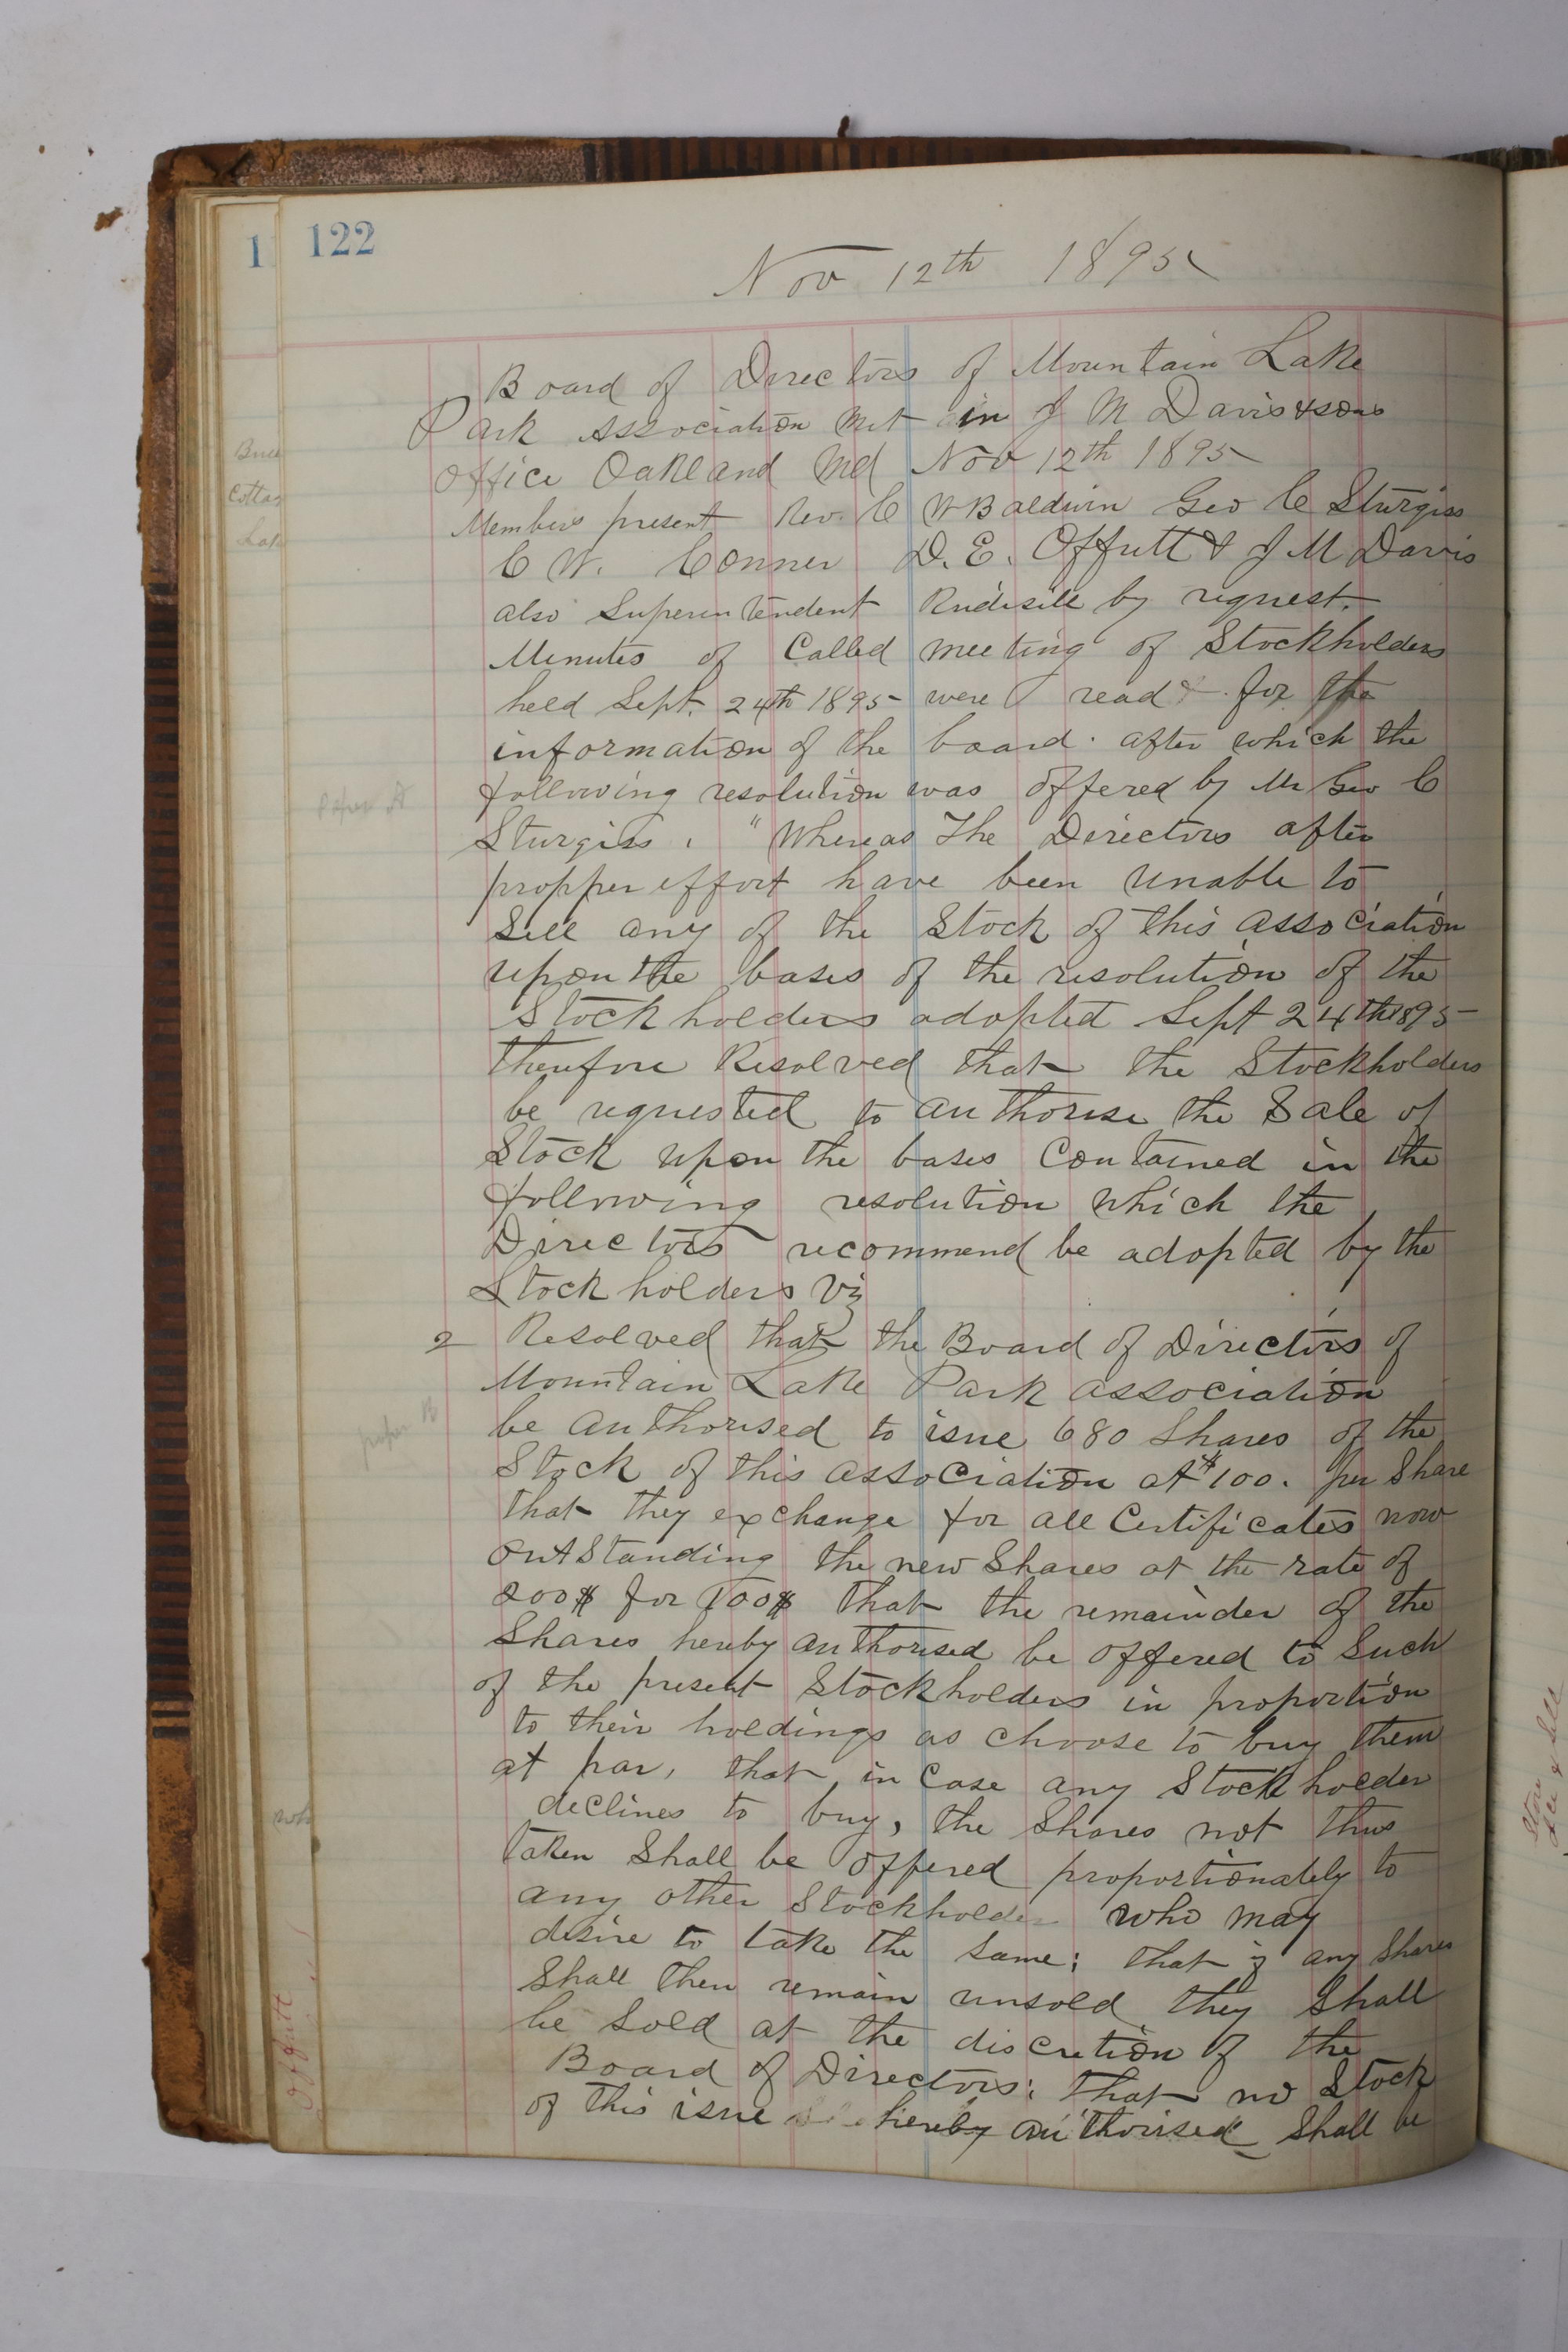 122
Nov 12th 1895
Board of Directors of Mountain Lake
Park Association met in J M Davis & sons
office Oakland Md Nov 12th 1895
Members present Rev. C W Baldwin Geo C Sturgiss
C W. Conner D. E. Offutt & J M Davis
also Superintendent Rudisill by request.
Minutes of Called meeting of Stockholders
held Sept. 24th 1895 were read for the
information of the board. after which the
following resolution was offered by Mr Geo C
Paper A
Sturgiss. "Whereas The Directors after
propper effort have been unable to
sell any of the Stock of this association
upon the bases of the resolution of the
Stockholders adopted Sept 24th 1895
therefore Resolved that the Stockholders
be requested to authorise the Sale of
Stock upon the bases Contained in the
following resolution which the
Directors recommend be adopted by the
Stockholders Viz
2 Resolved that the Board of Directors of
Mountain Lake Park association
paper B
be authorised to isue 680 Shares of the
Stock of this association at $100. per Share
that they exchange for all Certificates now
outstanding the new Shares at the rate of
200$ for 100$ that the remainder of the
Shares hereby authorised be offered to Such
of the present Stockholders in proportion
to their holdings as choose to buy them
at par, that in Case any Stockholder
declines to buy, the Shares not thus
taken Shall be offered proportionately to
any other Stockholder who may
desire to take the same; that if any Shares
Shall then remain unsold they Shall
be Sold at the discretion of the
Board of Directors: that no Stock
of this isue hereby authorised Shall be
1
Cottag
Offutt